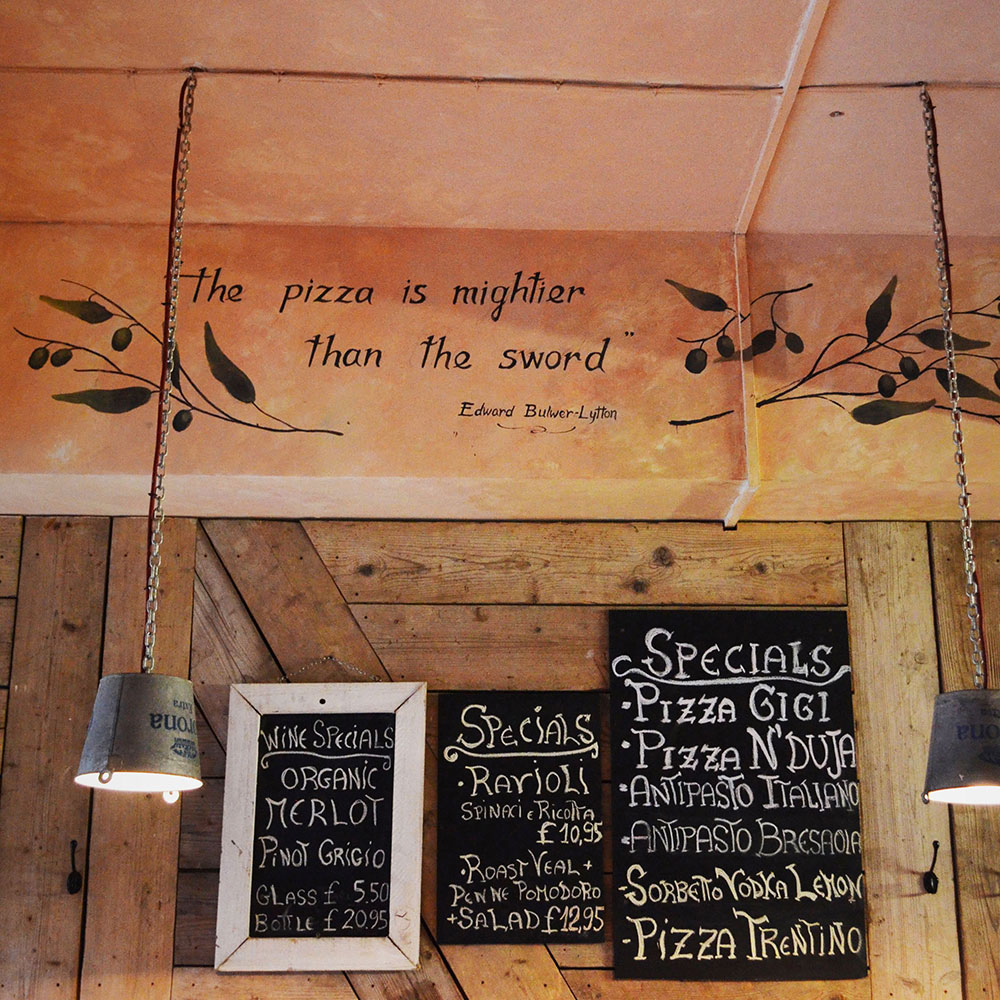 The pizza is mightier
than the sword"
Edward Bulwer-Lytton
Corona
Extra
WINE SPECIALS
ORGANIC
MERLOT
PINOT GRIGIO
GLASS £ 5.50
BOTLE £ 20.95
SPECIALS
·RAVIOLI
SPINACI E RICOTTA
£10,95
·ROAST VEAL +
PENNE POMODORO
+SALAD £12,95
SPECIALS
·PIZZA GIGI
·PIZZA N'DUJA
·ANTIPASTO ITALIANO
·ANTIPASTO BRESAOLA
-SORBETTO VODKA LEMON
-PIZZA TRENTINO